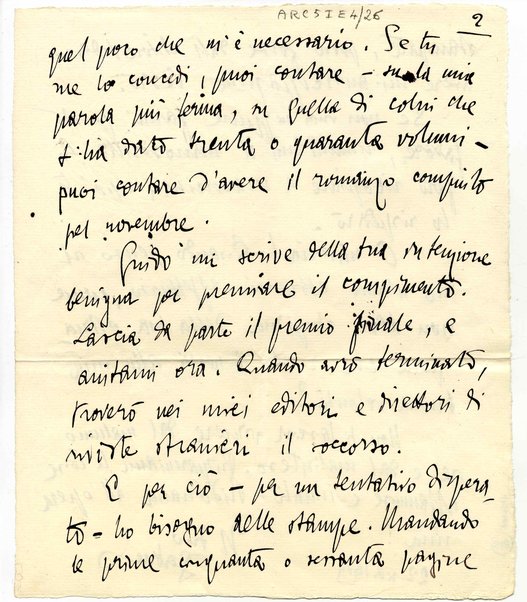 ARC5IE4/26
2
quel poco che m'è necessario. Se tu
me lo concedi, puoi contare – su la mia
parola più ferma, su quella di colui che
t'ha dato trenta o quaranta volumi –
puoi contare d'avere il romanzo compiuto
pel novembre.
Guido mi scrive della tua intenzione
benigna per premiare il compimento.
Lascia da parte il premio finale, e
aiutami ora. Quando avrò terminato,
troverò nei miei editori e direttori di
riviste stranieri il soccorso.
E per ciò – per un tentativo dispera-
to – ho bisogno delle stampe. Mandando
le prime cinquanta o sessanta pagine